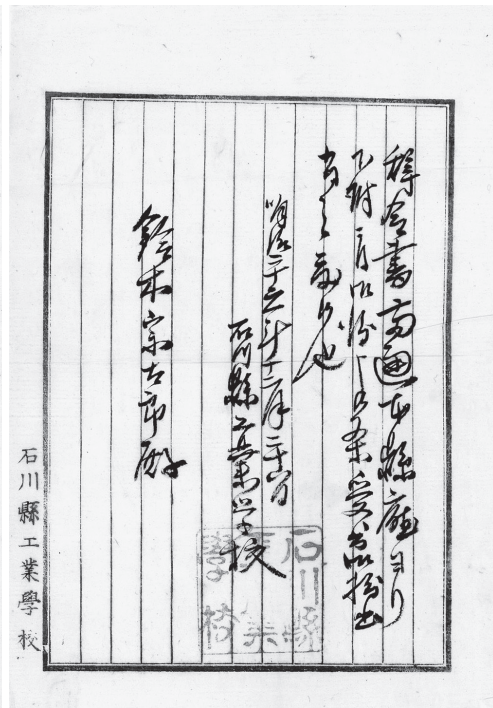 辞令書壱通本縣廳ヨリ
下附
有之度候也
明治二十六年十二月二十六日
石川縣工業学校
鈴木宗太郎殿
石川縣工業學校
石川縣工業學校